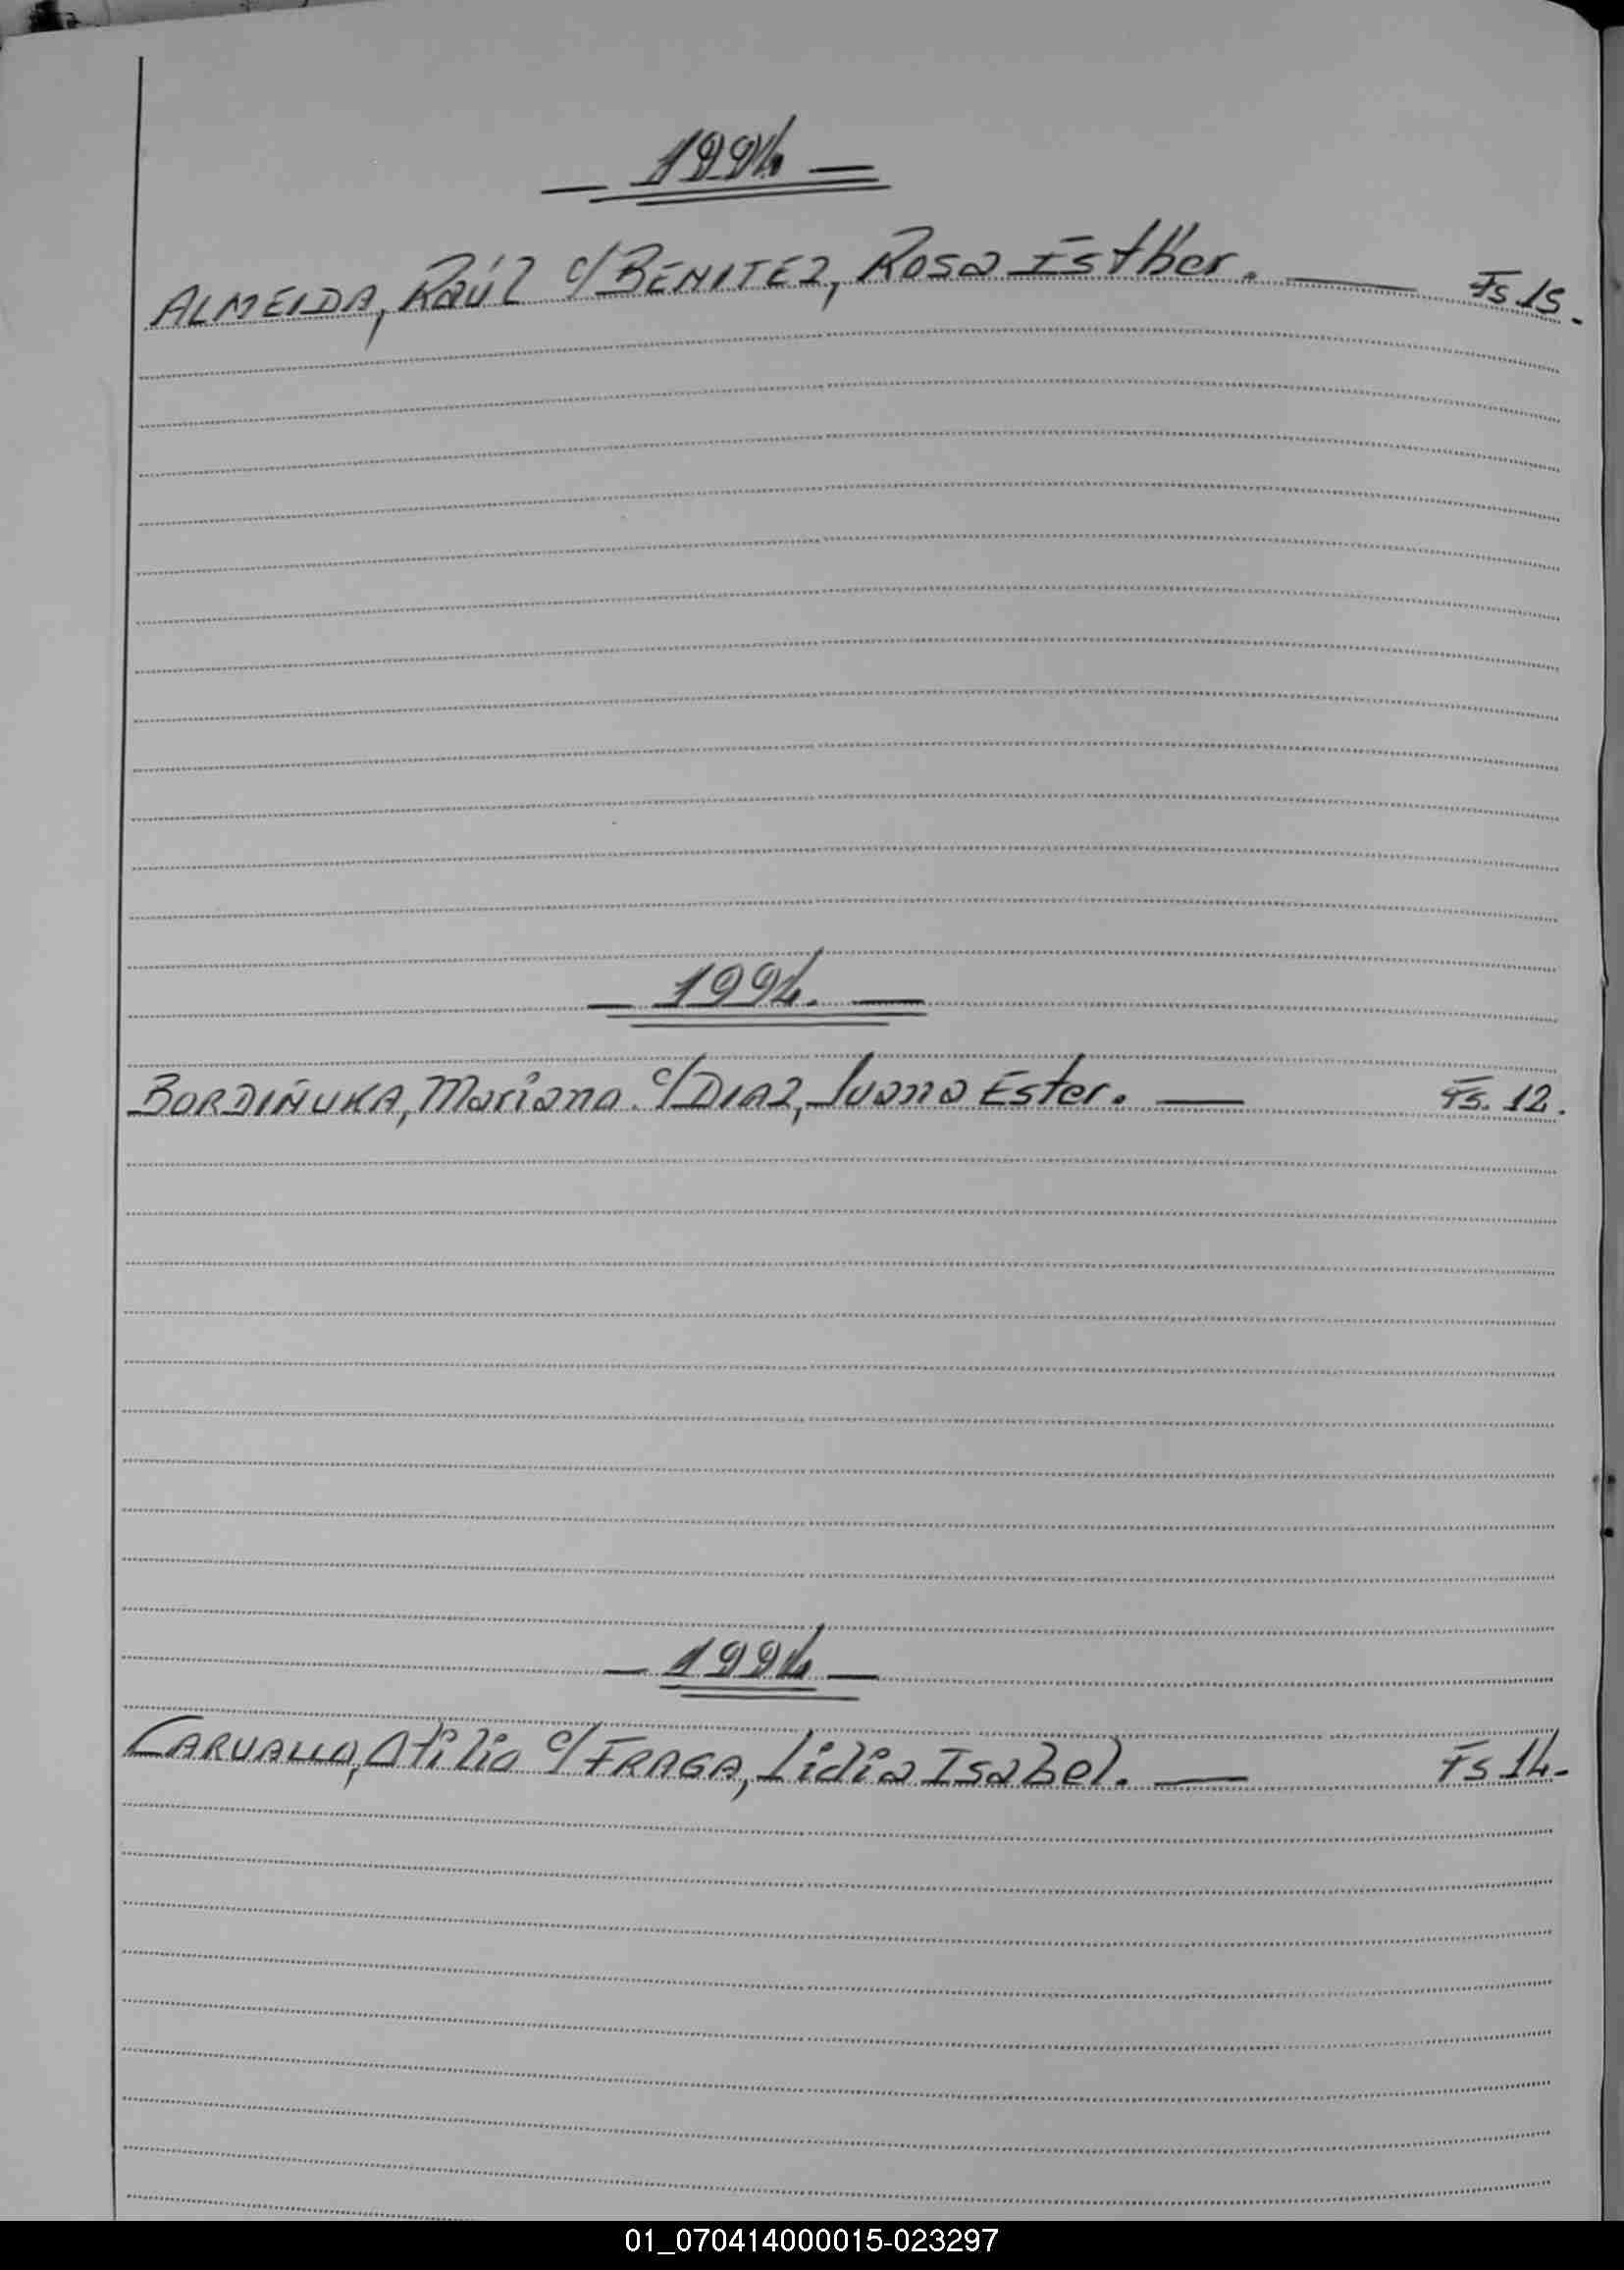 — 1994 —
ALMEIDA, Raúl c/ BENITEZ, Rosa Esther. — Fs 15.
— 1994. —
BORDIÑUKA, Mariano c/ DIAZ, Juana Ester. — Fs. 12.
— 1994 —
CARVALLO, Atilio c/ FRAGA, Lidia Isabel. — Fs 14.
01_070414000015-023297